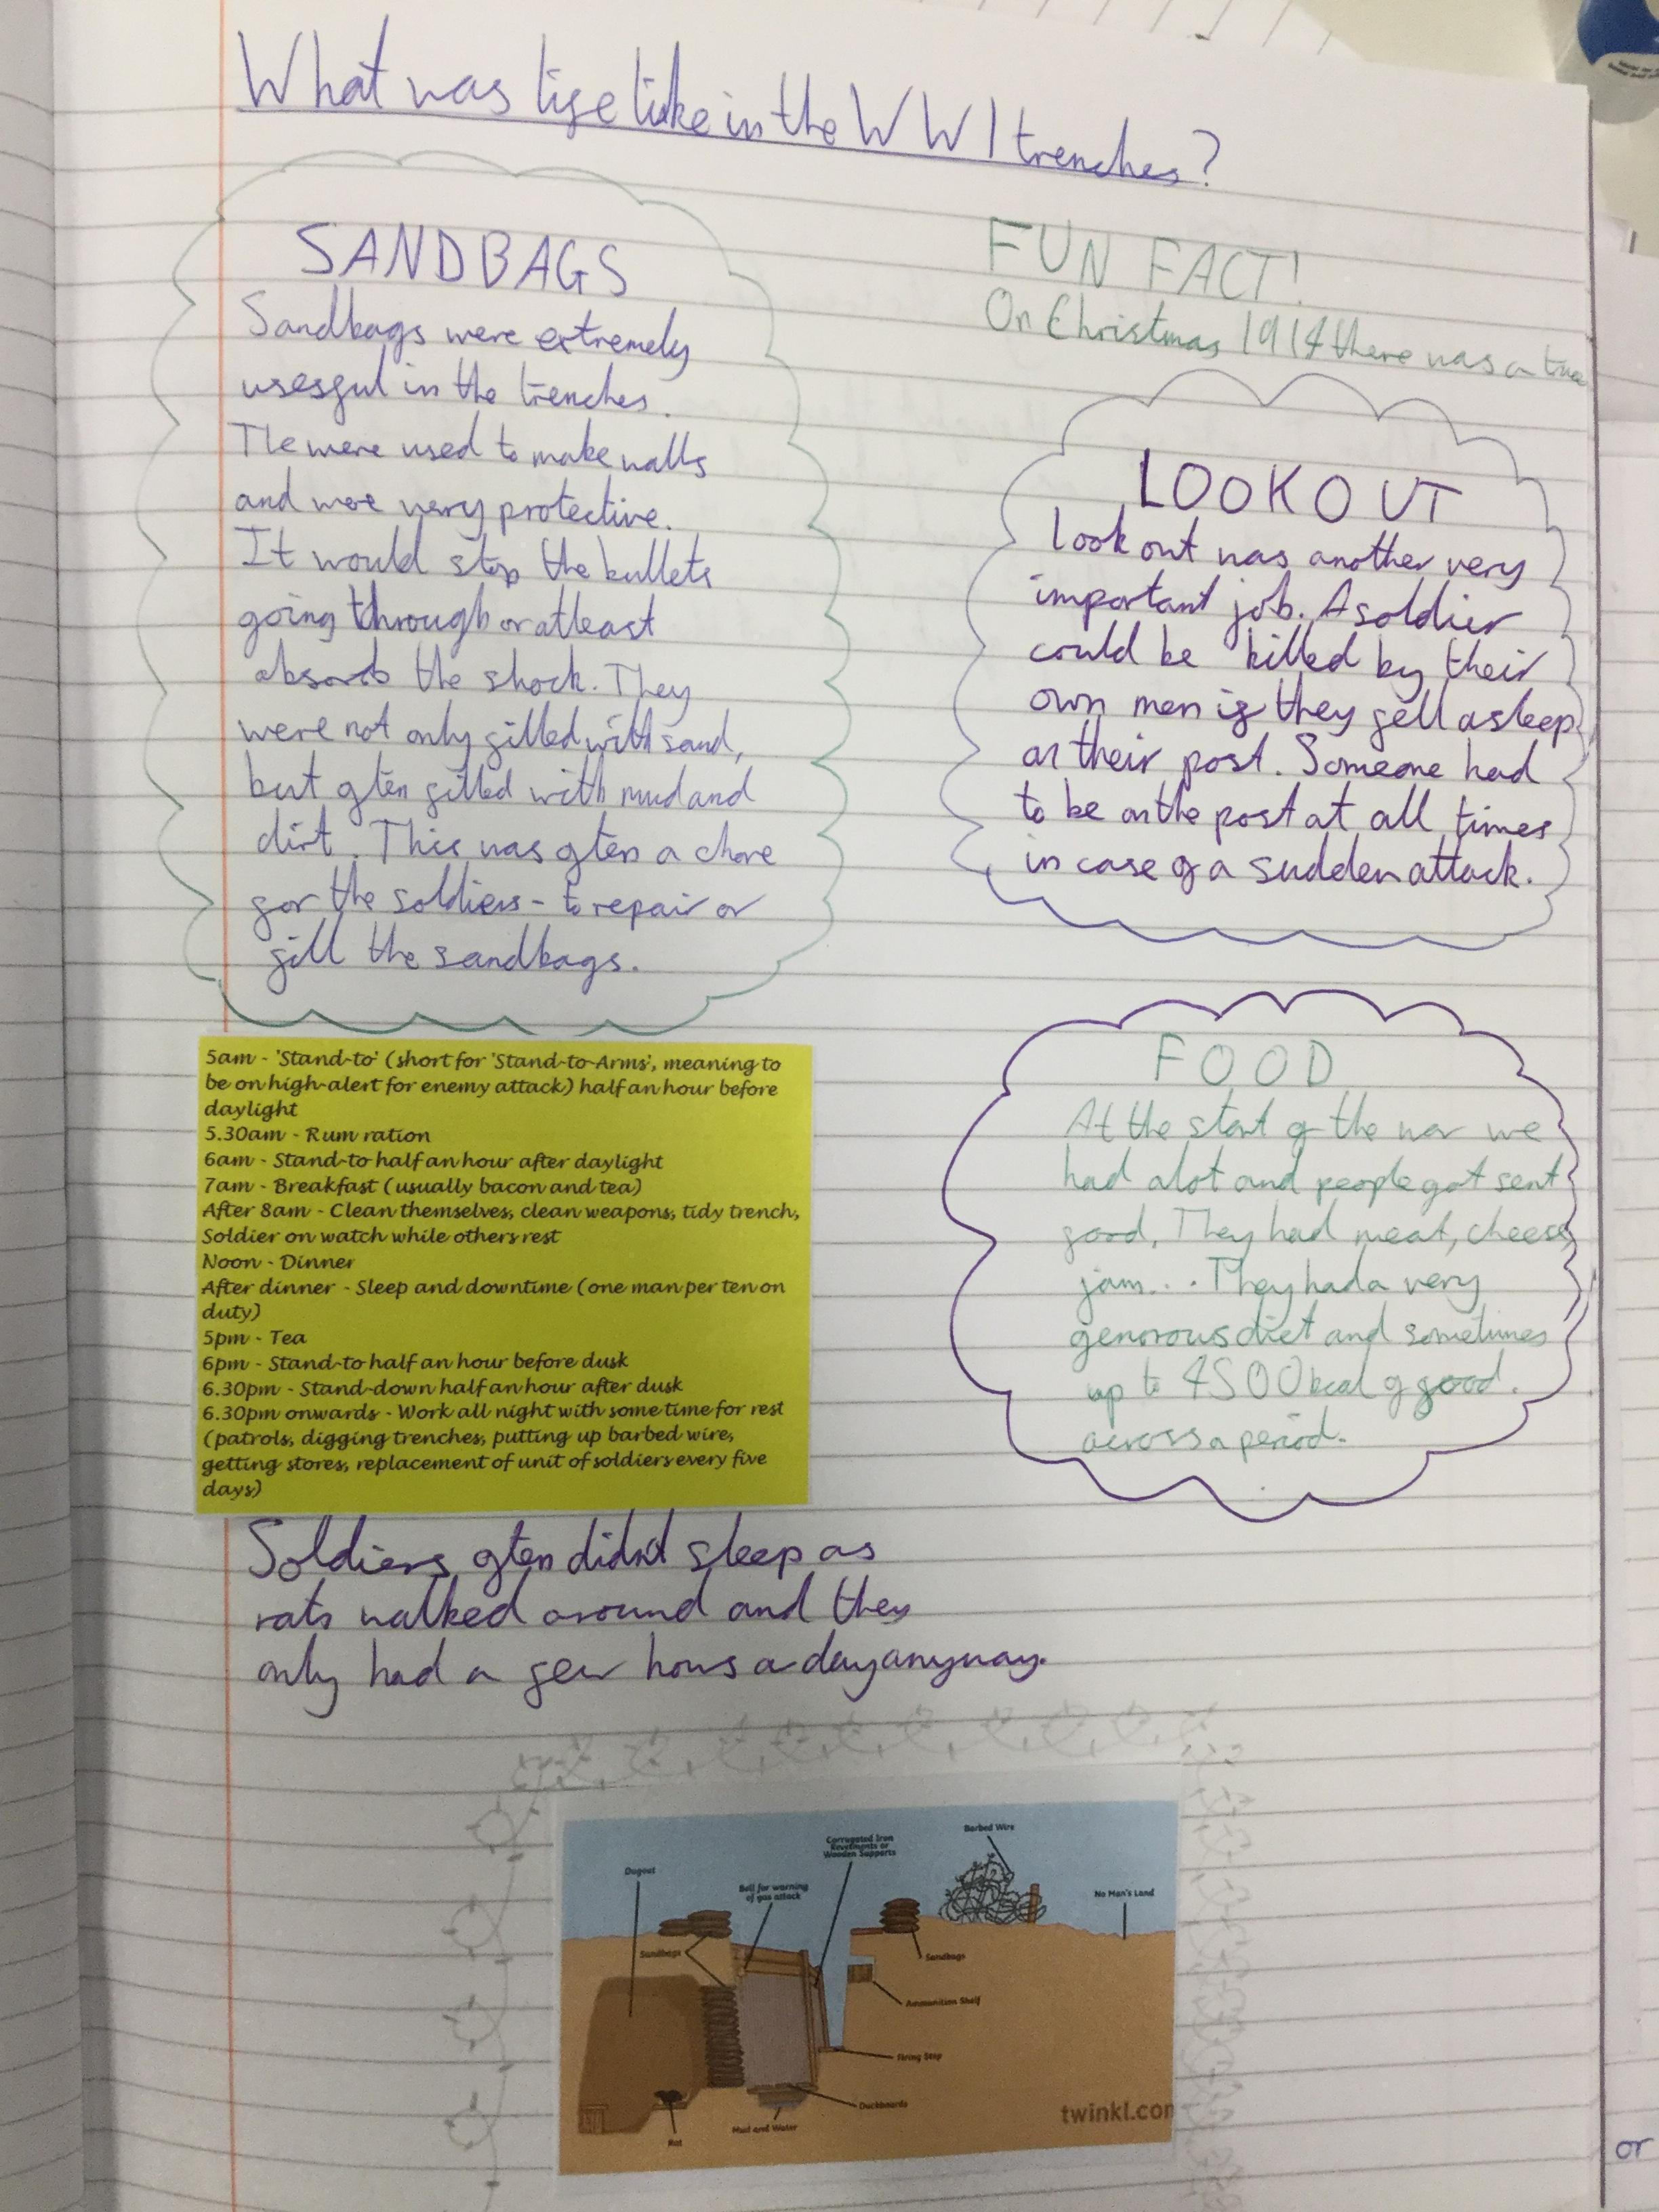 What was life like in the WW1 trenches?
SANDBAGS
Sandbags were extremely
usesful in the trenches.
Tle were used to make walls
and were very protective.
It would stop the bullets
going through or atleast
absorb the shock. They
were not only filled with sand,
but often filled with mud and
dirt. This was often a chore
for the soldiers - to repair or
fill the sandbags.
FUN FACT!
On Christmas 1914 there was a truce
LOOKOUT
Lookout was another very
important job. A soldier
could be killed by their
own men if they fell asleep
on their post. Someone had
to be on the post at all times
in case of a sudden attack.
5am - 'Stand-to' (short for 'Stand-to-Arms', meaning to
be on high-alert for enemy attack) half an hour before
daylight
5.30am - Rum ration
6am - Stand-to half an hour after daylight
7am - Breakfast (usually bacon and tea)
After 8am - Clean themselves, clean weapons, tidy trench,
Soldier on watch while others rest
Noon - Dinner
After dinner - Sleep and downtime (one man per ten on
duty)
5pm - Tea
6pm - Stand-to half an hour before dusk
6.30pm - Stand-down half an hour after dusk
6.30pm onwards - Work all night with some time for rest
(patrols, digging trenches, putting up barbed wire,
getting stores, replacement of unit of soldiers every five
days)
FOOD
At the start of the war we
had alot and people got sent
food, They had meat, cheese,
jam... They had a very
generous diet and sometimes
up to 4500kcal of food.
across a period.
Soldiers often didn't sleep as
rats walked around and they
only had a few hours a day anyway.
Dugout
Bell for warning
of gas attack
Corrugated Iron
Revetments or
Wooden Supports
Barbed Wire
No Man's Land
Sandbags
Sandbags
Ammunition Shelf
Firing Step
Duckboards
Mud and Water
Rat
twinkl.com
or